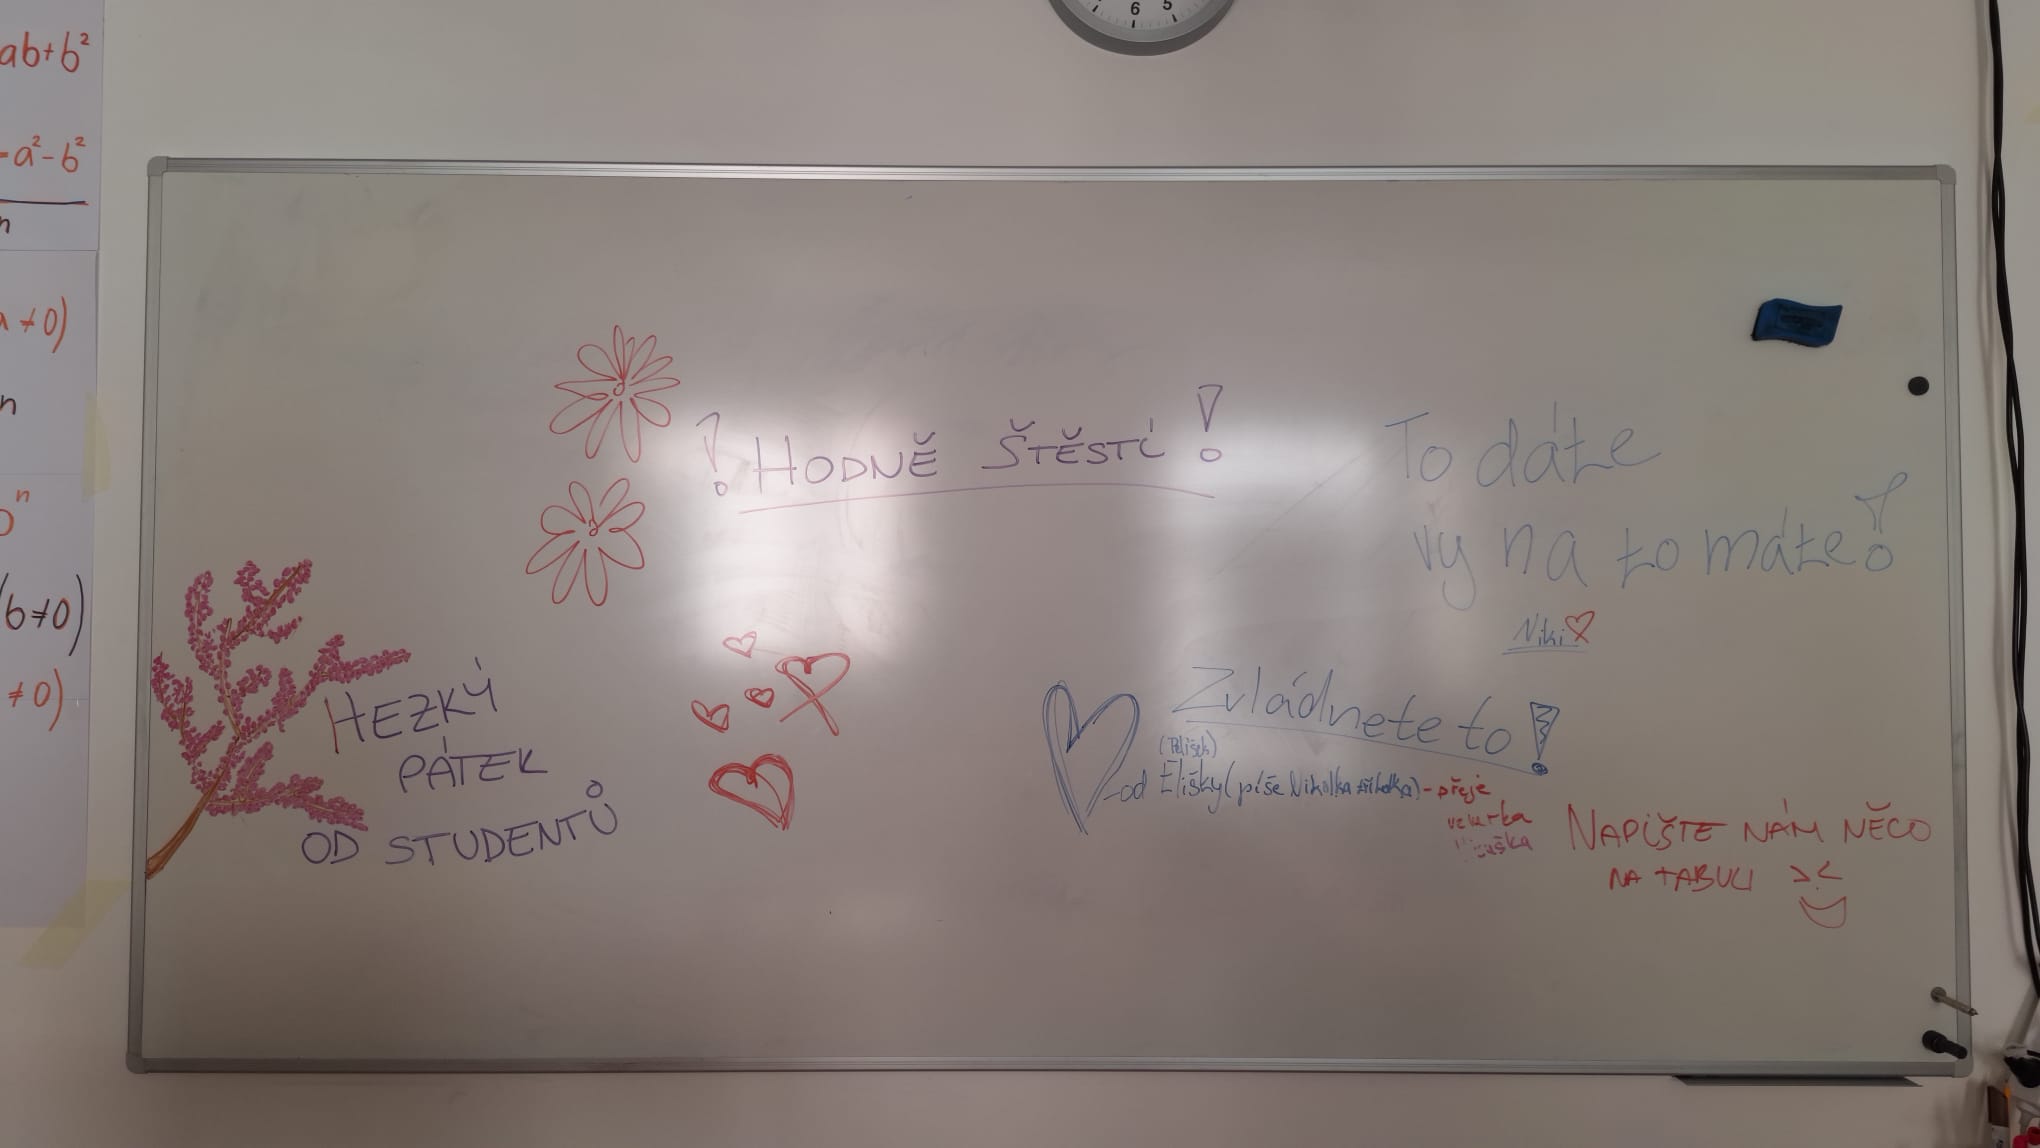 ab+b²
-a²-b²
n
≠0)
n
n
(b≠0)
≠0)
6 5
! HODNĚ ŠTĚSTÍ !
To dáte
vy na to máte!
Niki
HEZKÝ
PÁTEK
OD STUDENTŮ
Zvládnete to!
-od Elišky (píše Nikolka - přeje
NAPIŠTE NÁM NĚCO
NA TABULI